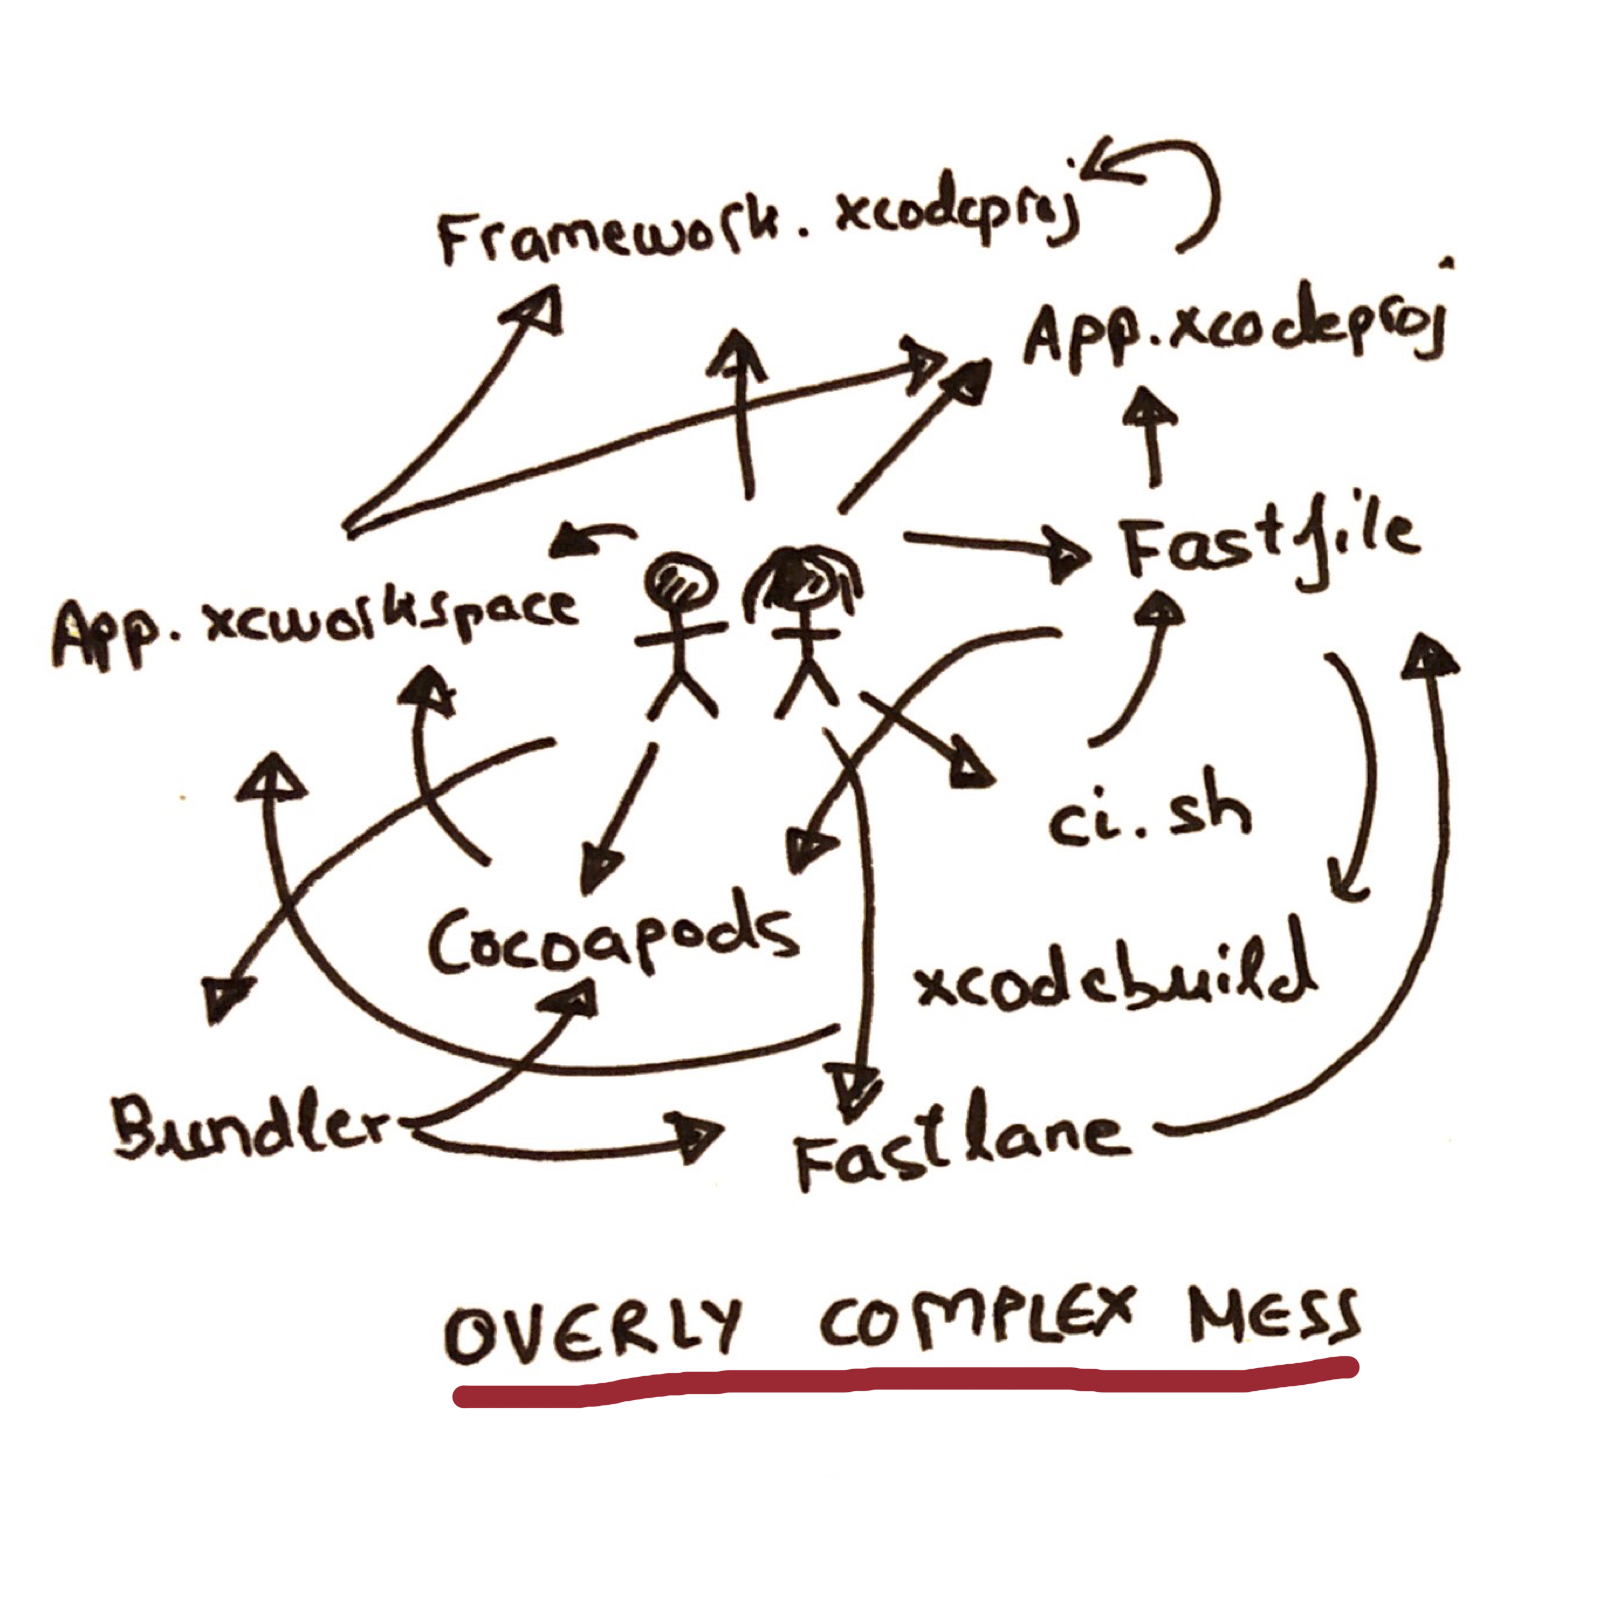 Framework.xcodeproj
App.xcodeproj
Fastfile
App.xcworkspace
ci.sh
Cocoapods
xcodebuild
Bundler
Fastlane
OVERLY COMPLEX MESS